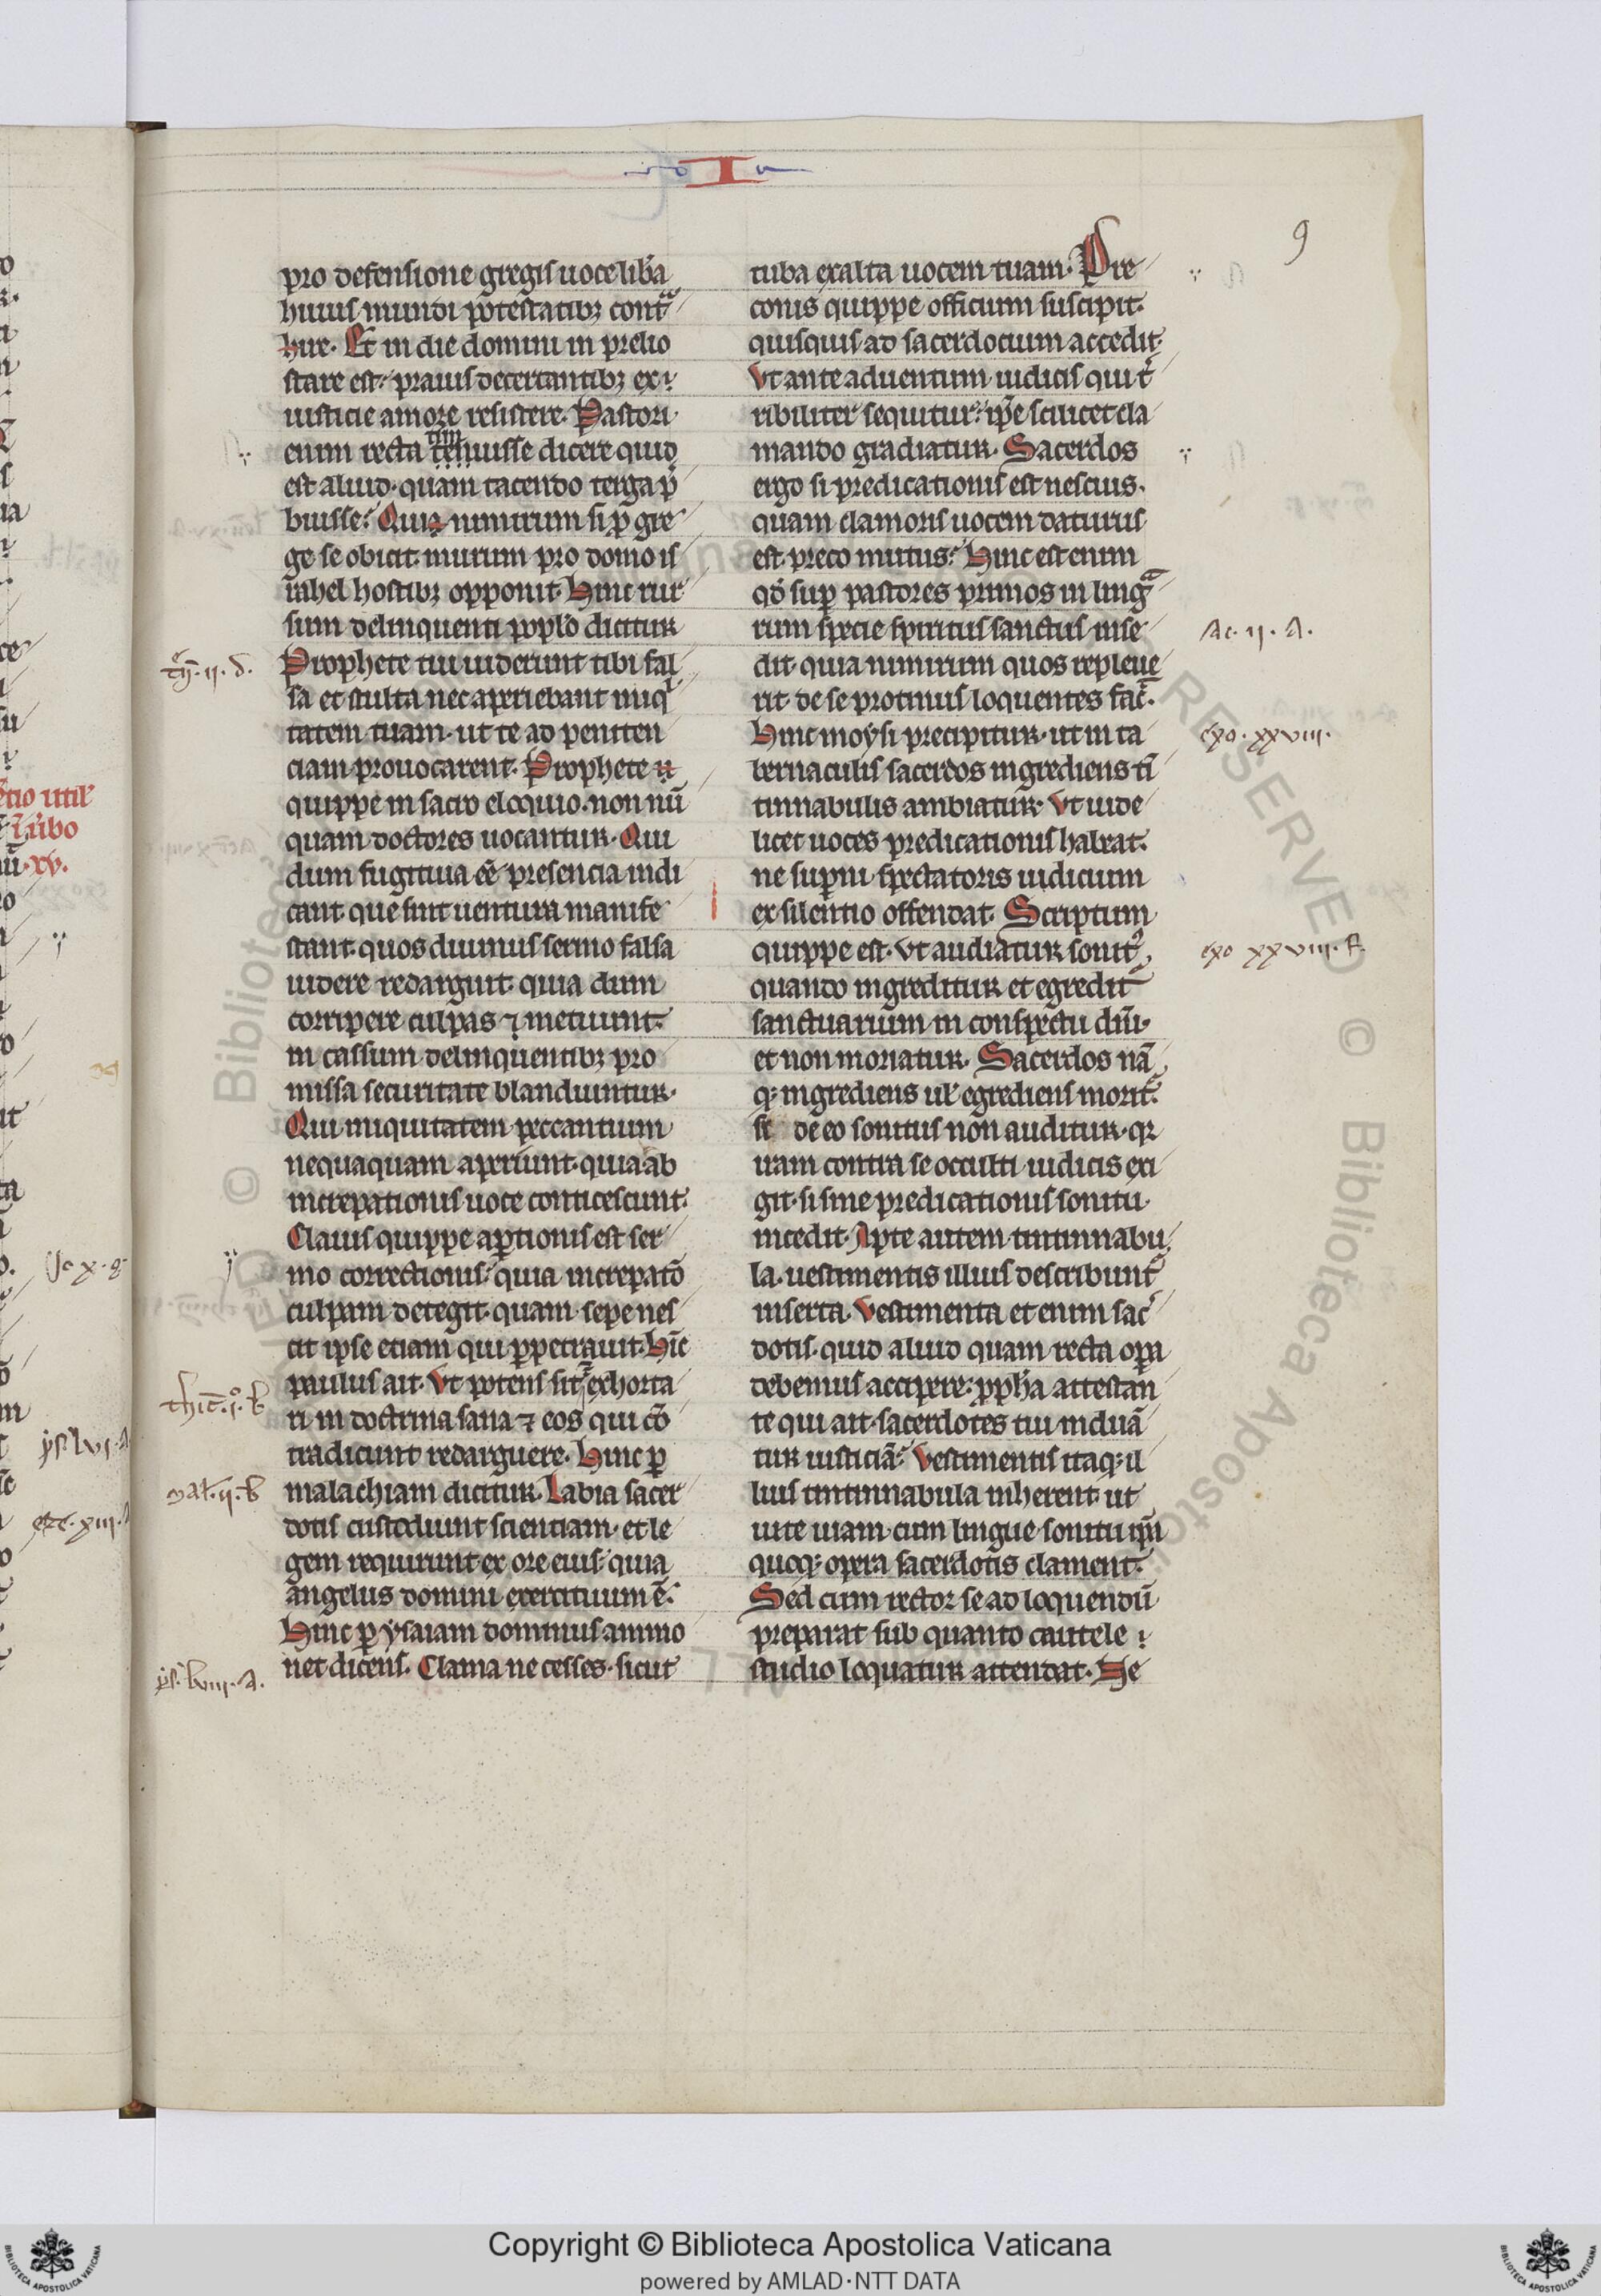 I
9
pro defensione gregis uoce lib̾a
huius mundi potestatibꝫ contᵃ
hire. Et in die domini in prelio
stare est. prauis decertantibꝫ ex
iusticie amore resistere. Pastori
enim recta tim̄uisse dicere quid
est aliud. quam tacendo terga p̄
buisse. Qui nimirum si ꝓ gre
ge se obicit. murum pro domo is
rahel hostibꝫ opponit. Hinc rur
sum delinquenti pop̄lo dicitur
Prophete tui uiderunt tibi fal
sa et stulta nec aperiebant iniqⁱ
tatem tuam. ut te ad peniten
ciam prouocarent. Prophete
quippe in sacro eloquio. non nū
quam doctores uocantur. Qui
dum fugitiua eē presencia indi
cant. que sint uentura manife
stant. quos diuinus sermo falsa
uidere redarguit. quia dum
corripere culpas ⁊ metuunt.
in cassum delinquentibꝫ pro
missa securitate blandiuntur.
Qui iniquitatem peccantium
nequaquam aperiunt. quia ab
increpationis uoce conticescunt.
Clauis quippe aꝑtionis est ser
mo correctionis. quia increpatō
culpam detegit. quam sepe nes
cit ipse etiam qui ꝑpetrauit. Hīc
paulus ait. Vt potens sit exhorta
ri in doctrina sana ⁊ eos qui cō
tradicunt redarguere. Hinc ꝑ
malachiam dicitur. Labia sacer
dotis custodiunt scientiam. et le
gem requirunt ex ore eius. quia
angelus domini exercituum ē.
Hinc ꝑ ysaiam dominus ammo
net dicens. Clama ne cesses. sicut
tuba exalta uocem tuam. Pre
conis quippe officium suscipit.
quisquis ad sacerdocium accedit.
Vt ante aduentum iudicis qui t̾
ribiliter sequitur. ip̄e scilicet cla
mando gradiatur. Sacerdos
ergo si predicationis est nescius.
quam clamoris uocem daturus
est preco mutus. Hinc est enim
qđ suꝑ pastores primos in lingᵃ
rum specie spiritus sanctus inse
dit. quia nimirum quos repleue
rit de se protinus loquentes fac̄.
Hinc moysi precipitur. ut in ta
bernaculis sacerdos ingrediens tī
tinnabulis ambiatur. Vt uide
licet uoces predicationis habeat.
ne suꝑni spectatoris iudicium
ex silentio offendat. Scriptum
quippe est. Vt audiatur sonitꝰ
quando ingreditur et egredit᷑
sanctuarium in conspectu dn̄i.
et non moriatur. Sacerdos nā
qꝫ ingrediens ul̓ egrediens morit᷑.
si de eo sonitus non auditur. qꝛ
iram contra se occulti iudicis exi
git. si sine predicationis sonitu
incedit. Apte autem tintinnabu
la. uestimentis illius describunt᷑
inserta. Vestimenta et enim sac̾
dotis. quid aliud quam recta oꝑa
debemus accipere. ꝓph̄a attestan
te qui ait. sacerdotes tui induā
tur iusticiā. Vestimentis itaqꝫ il
lius tintinnabula inherent. ut
uite uiam cum lingue sonitu ip̄a
quoqꝫ opera sacerdotis clament.
Sed cum rector se ad loquendū
preparat sub quanto cautele
studio loquatur attendat. Ne
.ii. d.
thīc. i°. b
mal. ii. b
ys. lviii. A.
Ac. ii. A.
exo. xxviii.
exo xxviii. f.
Jo x. g
ys. lvi. A
eze. xiii.
tio utił
ī ūbo
nū. xv.
© Biblioteca Apostolica Vaticana
RESERVED © Biblioteca Apostolica
Copyright © Biblioteca Apostolica Vaticana
powered by AMLAD·NTT DATA
BIBLIOTECA APOSTOLICA VATICANA
BIBLIOTECA APOSTOLICA VATICANA